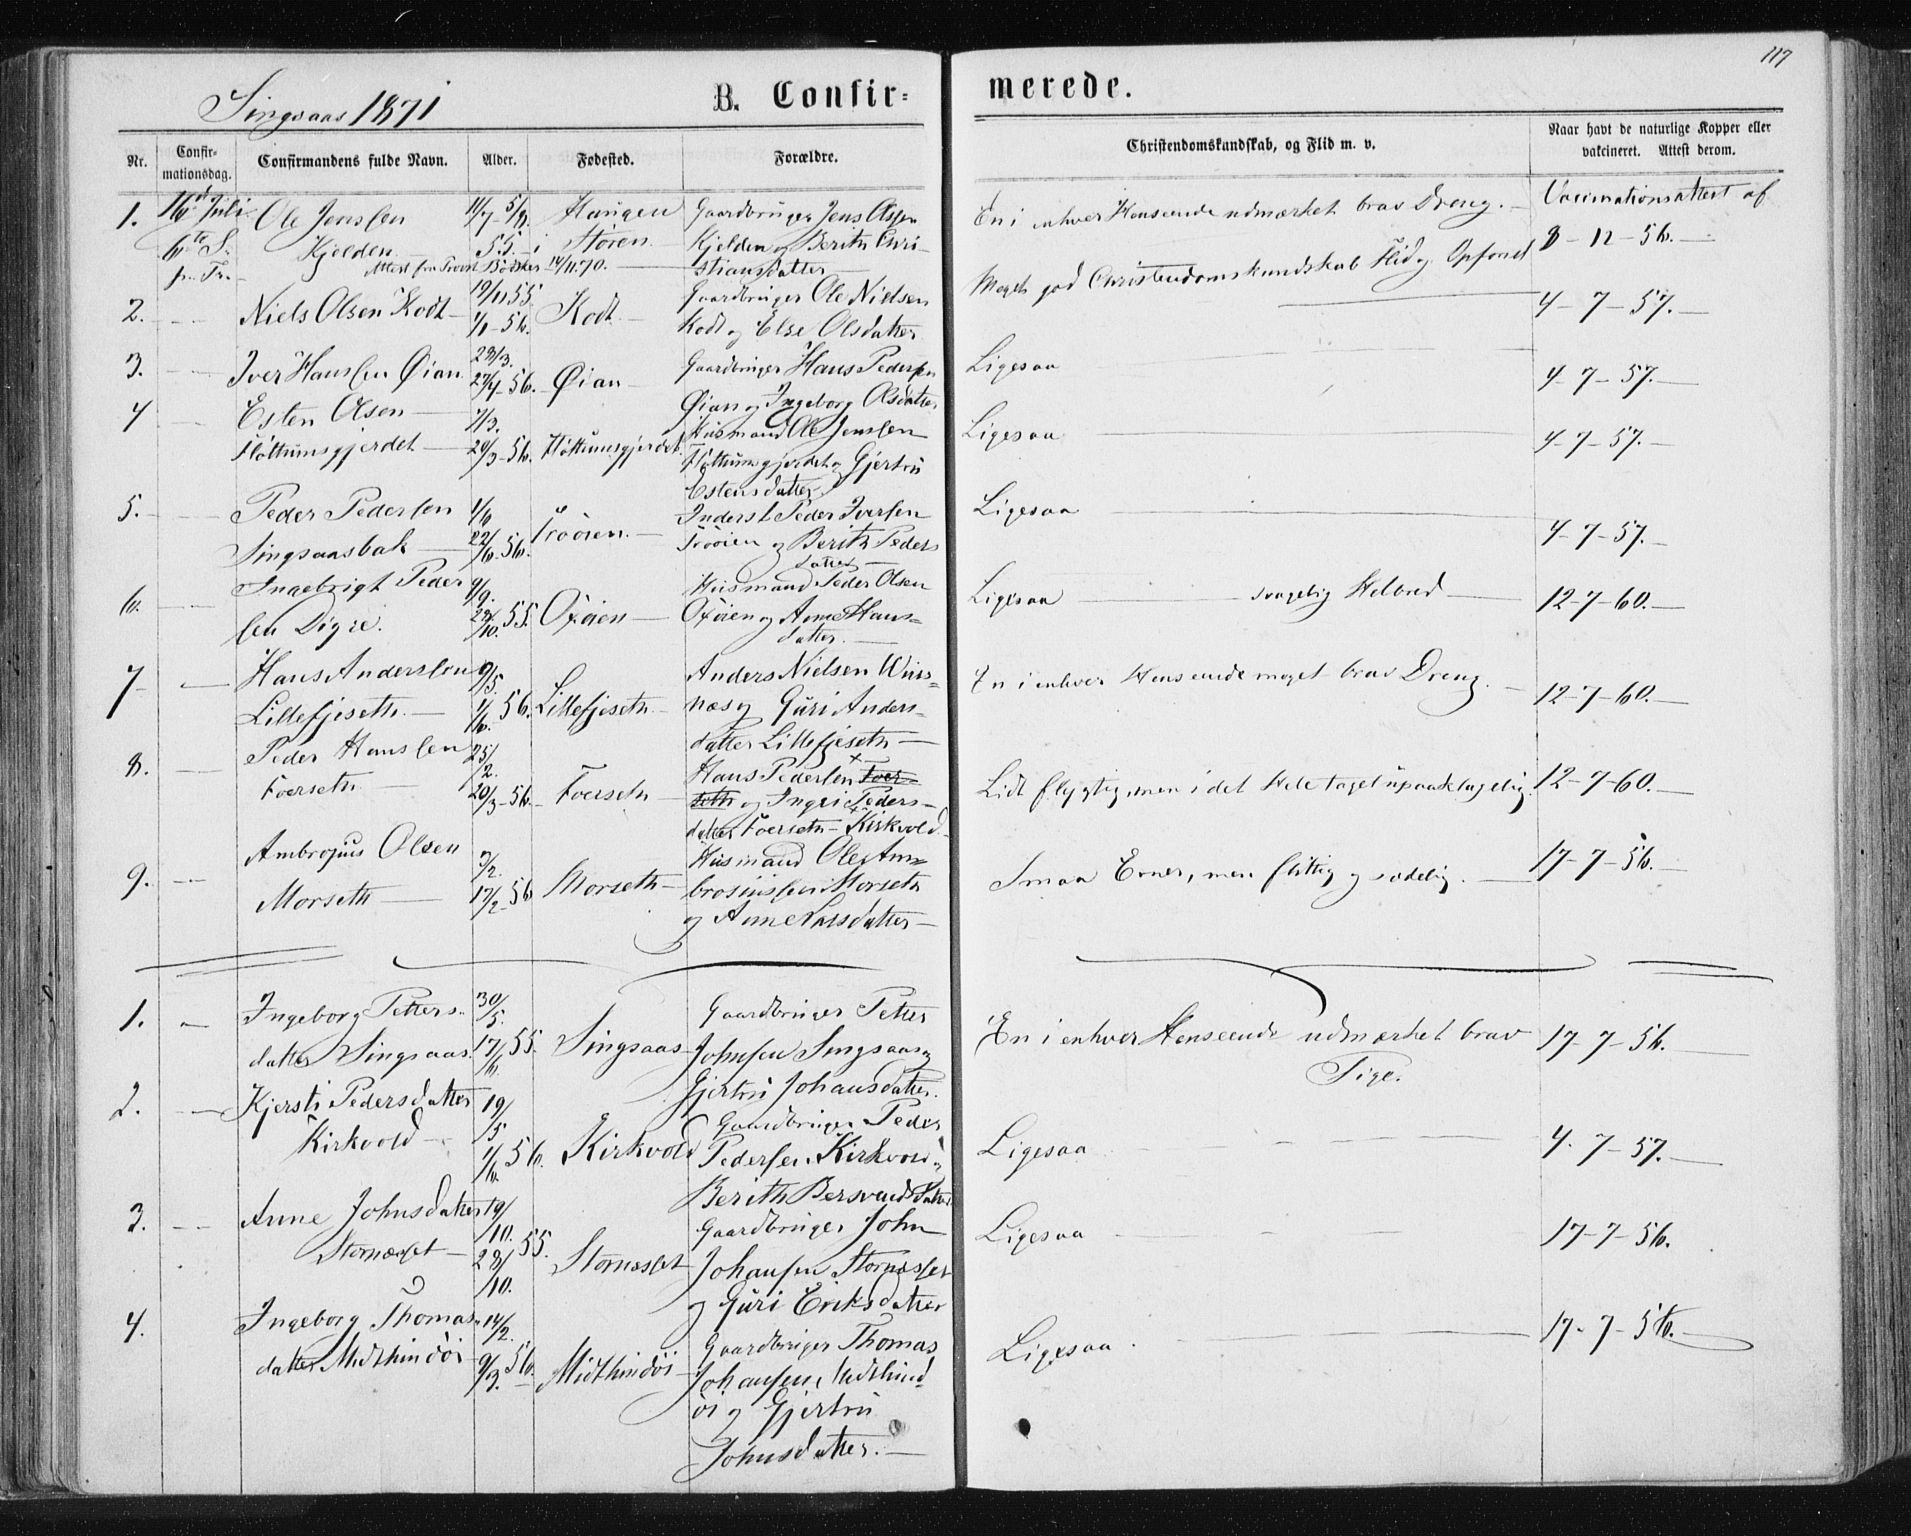 117
Singsaas 1871
B. Confir-
merede.
Nr.
Confir-
mationsdag.
Confirmandens fulde Navn.
Alder.
Fødested.
Forældre.
Christendomskundskab, og Flid m. v.
Naar havt de naturlige Kopper eller
vakcineret. Attest derom.
1.
16d Juli
6te S.
p. Tr.
Ole Jenssen
Kjelden
Attest fra Provst Bödtker 14/11.70.
11/7 - 5/8.
55. - i
Haugen
Støren
Gaardbruger Jens Olsen
Kjelden og Berith Chri-
stiansdatter
En i enhver Henseende udmærket brav Dreng.
Meget god Christendomskundskab Flid og Opførsel
Vaccinationsattest af
8 - 12 - 56.
2.
Niels Olsen Kodt
19/11 55.
1/1 - 56.
Kodt
Gaardbruger Ole Nielsen
Kodt og Else Olsdatter
4 - 7 - 57.
3.
Iver Hanssen Øian
23/3.
27/4 - 56.
Øian
Gaardbruger Hans Pedersen
Øian og Ingeborg Olsdatter
Ligesaa
4 - 7 - 57.
4
Esten Olsen
Fløttumsgjerdet
7/3.
29/3 - 56.
Fløttumsgjerdet
Husmand Ole Jenssen
Fløttumsgjerdet og Gjertru
Estensdatter
Ligesaa
4 - 7 - 57.
5.
Peder Pedersen
Singsaasbak
1/6
22/6 - 56.
Trøøien
Inderst Peder Iversen
Trøøien og Berith Peders
datter
Ligesaa
4 - 7 - 57.
6.
Ingebrigt Peder
sen Digre.
9/9.
29/10. 55.
Oxøien
Husmand Peder Olsen
Oxøien og Anne Hans-
datter.
Ligesaa svagelig Helbred
12 - 7 - 60.
7
Hans Anderssen
Lillefjeseth.
9/5.
1/6. 56.
Lillefjeseth
Anders Nielsen Wins-
næs og Guri Anders-
datter Lillefjeseth
En i enhver Henseende meget brav Dreng.
12 - 7 - 60.
8.
Peder Hanssen
Foerseth
25/2.
20/3 - 56.
Foerseth
Hans Pedersen Foer-
seth og Ingri Peders-
datter Foerseth - Kirkvold
Lidt flygtig, men i det Hele taget upaaklagelig.
12 - 7 - 60.
9.
Ambrosius Olsen
Morseth
3/2.
17/2 - 56
Morseth
Husmand Ole Am-
brosiussen Morseth
og Anne Larsdatter
Smaa Evner, men flittig og sædelig.
17 - 7 - 56.
1.
Ingeborg Petters-
datter Singsaas.
30/5.
17/6. 55.
Singsaas
Gaardbruger Petter
Johnsen Singsaas og
Gjertru Johansdatter.
En i enhver Henseende udmærket brav
Pige.
17 - 7 - 56.
2.
Kjersti Pedersdatter
Kirkvold
19/5
1/6. 56.
Kirkvold
Gaardbruger Peder
Pedersen Kirkvold og
Berith Bersvendsdatter
Ligesaa
4. 7 - 57.
3.
Anne Johnsdatter
Stornæsset
19/10.
28/10. 55.
Stornæsset
Gaardbruger John
Johansen Stornæsset
og Guri Eriksdatter
Ligesaa
17 - 7 - 56.
4.
Ingeborg Thomas-
datter Midthindöi
14/2.
9/3. 56.
Midthindöi
Gaardbruger Thomas
Johansen Midthind
öi og Gjertru
Johnsdatter.
Ligesaa
17 - 7 - 56.